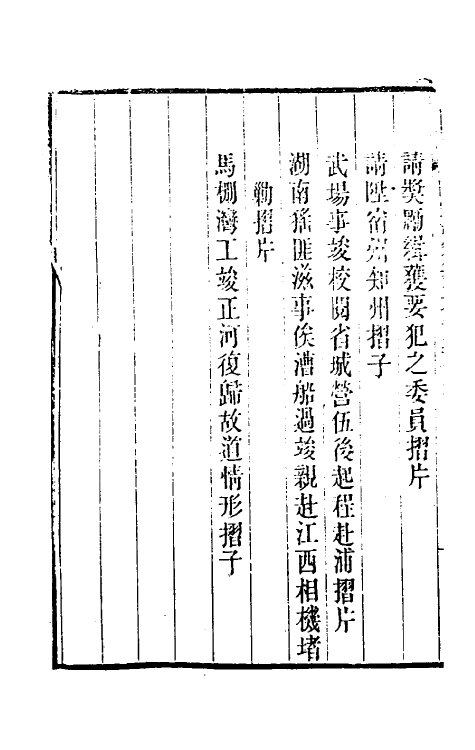 請獎勵緝獲要犯之委員摺片
請陞宿州知州摺子
武場事竣校閱省城營伍後起程赴浦摺片
湖南猺匪滋事俟漕船過竣親赴江西相機堵
勦摺片
馬棚灣工竣正河復歸故道情形摺子